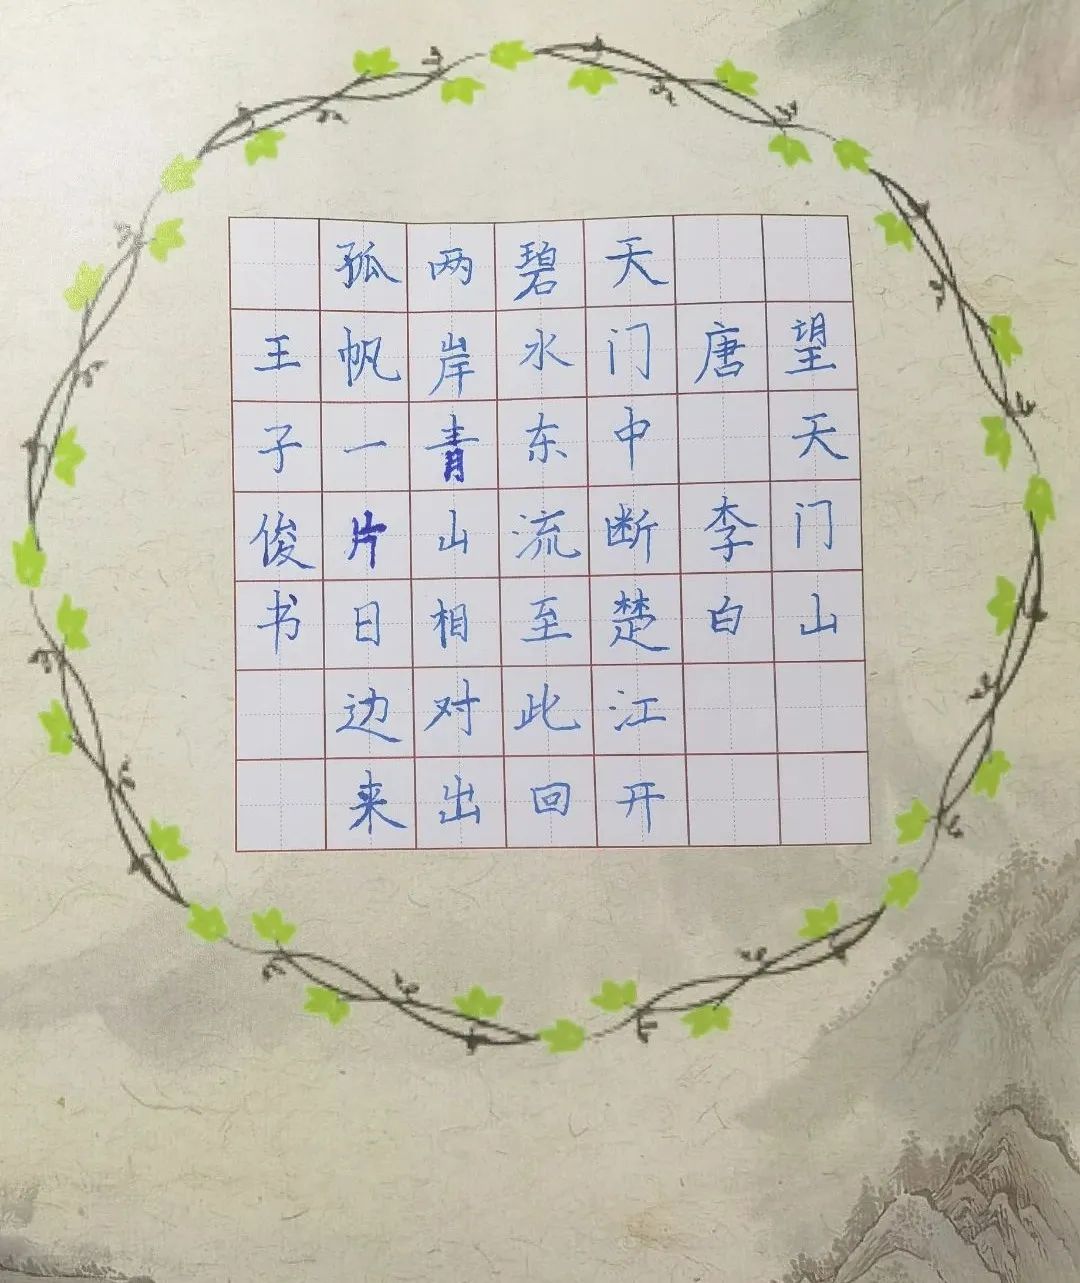 望天门山
唐 李白
天门中断楚江开
碧水东流至此回
两岸青山相对出
孤帆一片日边来
王子俊书